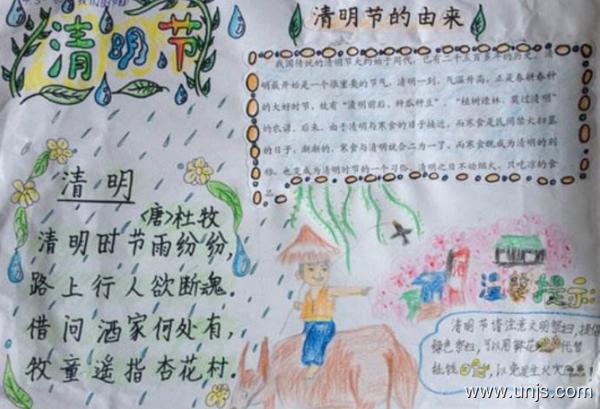 清明节
清明节的由来
我国传统的清明节大约始于周代，已有二千五百多年的历史。清
明最开始是一个很重要的节气，清明一到，气温升高，正是春耕春种
的大好时节，故有“清明前后，种瓜种豆”、“植树造林，莫过清明”
的农谚。后来，由于清明与寒食的日子接近，而寒食是民间禁火扫墓
的日子，渐渐的，寒食与清明就合二为一了，而寒食既成为清明的别
称，也变成为清明时节的一个习俗，清明之日不动烟火，只吃凉的食
品。
清明
〈唐〉杜牧
清明时节雨纷纷，
路上行人欲断魂.
借问酒家何处有，
牧童遥指杏花村.
温馨提示:
清明节请注意文明祭扫，提倡
绿色祭扫，可以用鲜花代替
纸钱 以免发生火灾
www.unjs.com